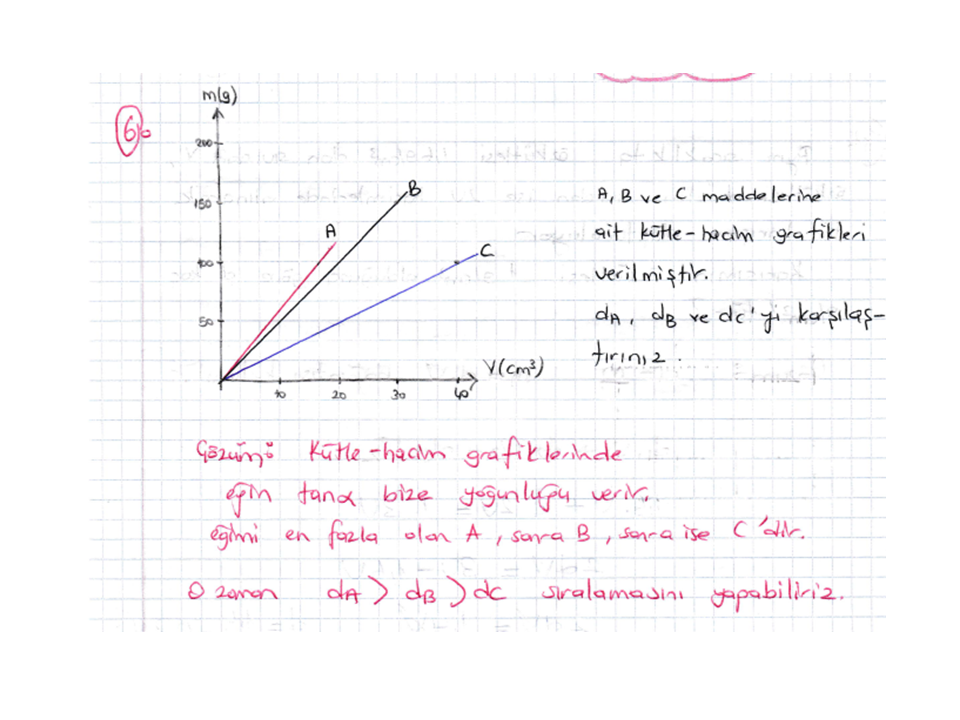 6.
m(g)
200
150
100
50
A
B
C
10 20 30 40
V(cm³)
A, B ve C maddelerine
ait kütle-hacim grafikleri
verilmiştir.
dA, dB ve dC'yi karşılaş-
tırınız.
Çözüm: Kütle-hacim grafiklerinde
eğim tanα bize yoğunluğu verir.
eğimi en fazla olan A, sonra B, sonra ise C'dir.
O zaman dA > dB > dC sıralamasını yapabiliriz.